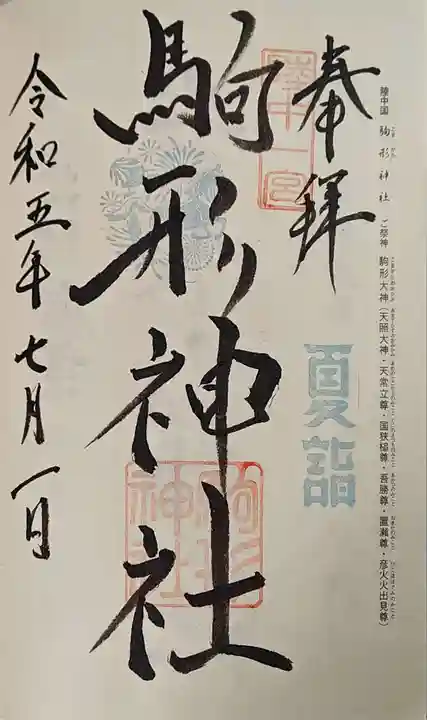 陸中国 駒形神社 ご祭神 駒形大神（天照大神・天常立尊・国狭槌尊・吾勝尊・置瀬尊・彦火火出見尊）
奉拝
夏詣
駒形神社
駒形神社
令和五年七月一日